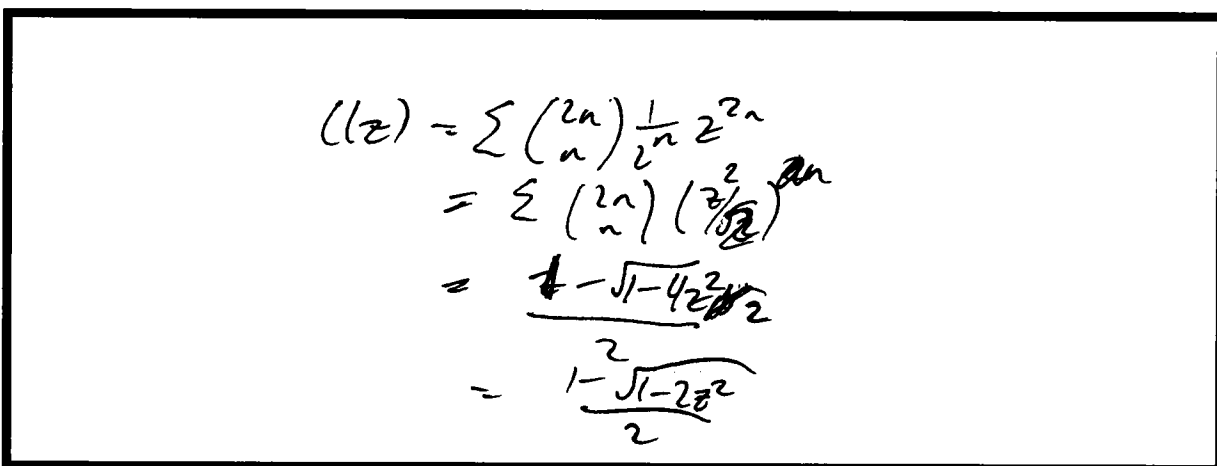 C(z) = Σ (2n n) 1/2^n z^{2n}
= Σ (2n n) (z^2/2)^n
= 1 - √(1-4z^2/2) / 2
= 1 - √(1-2z^2) / 2